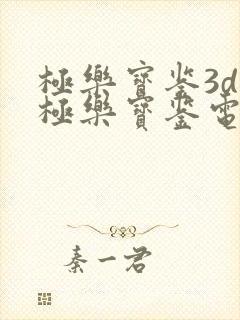 極樂寶鉴3d
極樂寶鉴電
秦一君